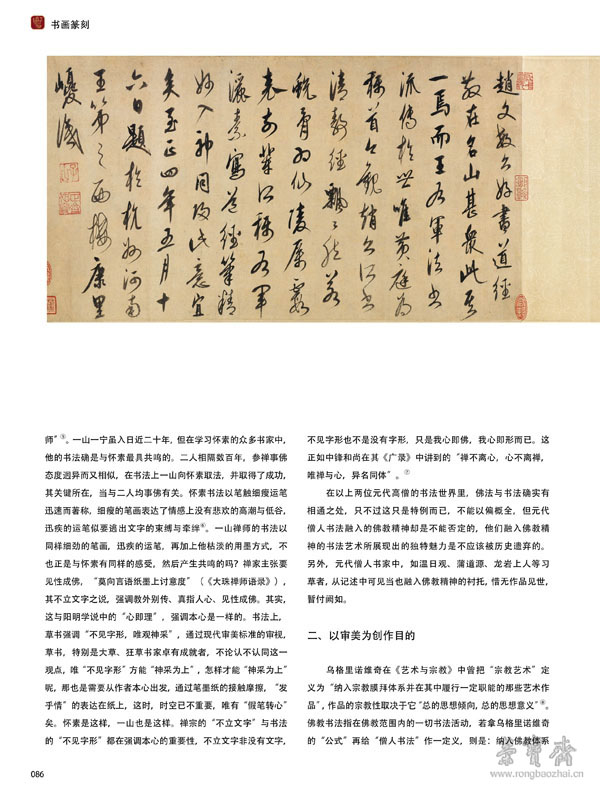 书画篆刻
趙文敏公好書道經
散在名山甚衆此其
一焉而王右軍法書
流傳於世唯黃庭為
稱首今觀趙公所書
清静經飄飄然若
蛻骨為仙陵厲霞
表前輩所稱右軍
灑素寫道經筆精
妙入神同此意宜
矣至正四年五月十
六日題於杭州河南
王第之西樓康里
巎識
师”⑤。一山一宁虽入日近二十年，但在学习怀素的众多书家中，
他的书法确是与怀素最具共鸣的。二人相隔数百年，参禅事佛
态度迥异而又相似，在书法上一山向怀素取法，并取得了成功，
其关键所在，当与二人均事佛有关。怀素书法以笔触细瘦运笔
迅速而著称，细瘦的笔画表达了情感上没有悲欢的高潮与低谷，
迅疾的运笔似要逃出文字的束缚与牵绊⑥。一山禅师的书法以
同样细劲的笔画，迅疾的运笔，再加上他枯淡的用墨方式，不
也正是与怀素有同样的感受，然后产生共鸣的吗？禅家主张要
见性成佛，“莫向言语纸墨上讨意度”（《大珠禅师语录》），
其不立文字之说，强调教外别传、真指人心、见性成佛。其实，
这与阳明学说中的“心即理”，强调本心是一样的。书法上，
草书强调“不见字形，唯观神采”，通过现代审美标准的审视，
草书，特别是大草、狂草书家卓有成就者，不论认不认同这一
观点，唯“不见字形”方能“神采为上”，怎样才能“神采为上”
呢，那也是需要从作者本心出发，通过笔墨纸的接触摩擦，“发
乎情”的表达在纸上，这时，时空已不重要，唯有“假笔转心”
矣。怀素是这样，一山也是这样。禅宗的“不立文字”与书法
的“不见字形”都在强调本心的重要性，不立文字非没有文字，
不见字形也不是没有字形，只是我心即佛，我心即形而已。这
正如中锋和尚在其《广录》中讲到的“禅不离心，心不离禅，
唯禅与心，异名同体”。⑦
在以上两位元代高僧的书法世界里，佛法与书法确实有
相通之处，只不过这只是特例而已，不能以偏概全，但元代
僧人书法融入的佛教精神却是不能否定的，他们融入佛教精
神的书法艺术所展现出的独特魅力是不应该被历史遗弃的。
另外，元代僧人书家中，如温日观、蒲道源、龙岩上人等习
草者，从记述中可见当也融入佛教精神的衬托，惜无作品见世，
暂付阙如。
二、以审美为创作目的
乌格里诺维奇在《艺术与宗教》中曾把“宗教艺术”定
义为“纳入宗教膜拜体系并在其中履行一定职能的那些艺术作
品”，作品的宗教性取决于它“总的思想倾向，总的思想意义”⑧。
佛教书法指在佛教范围内的一切书法活动，若拿乌格里诺维奇
的“公式”再给“僧人书法”作一定义，则是：纳入佛教体系
086
荣宝斋
www.rongbaozhai.cn